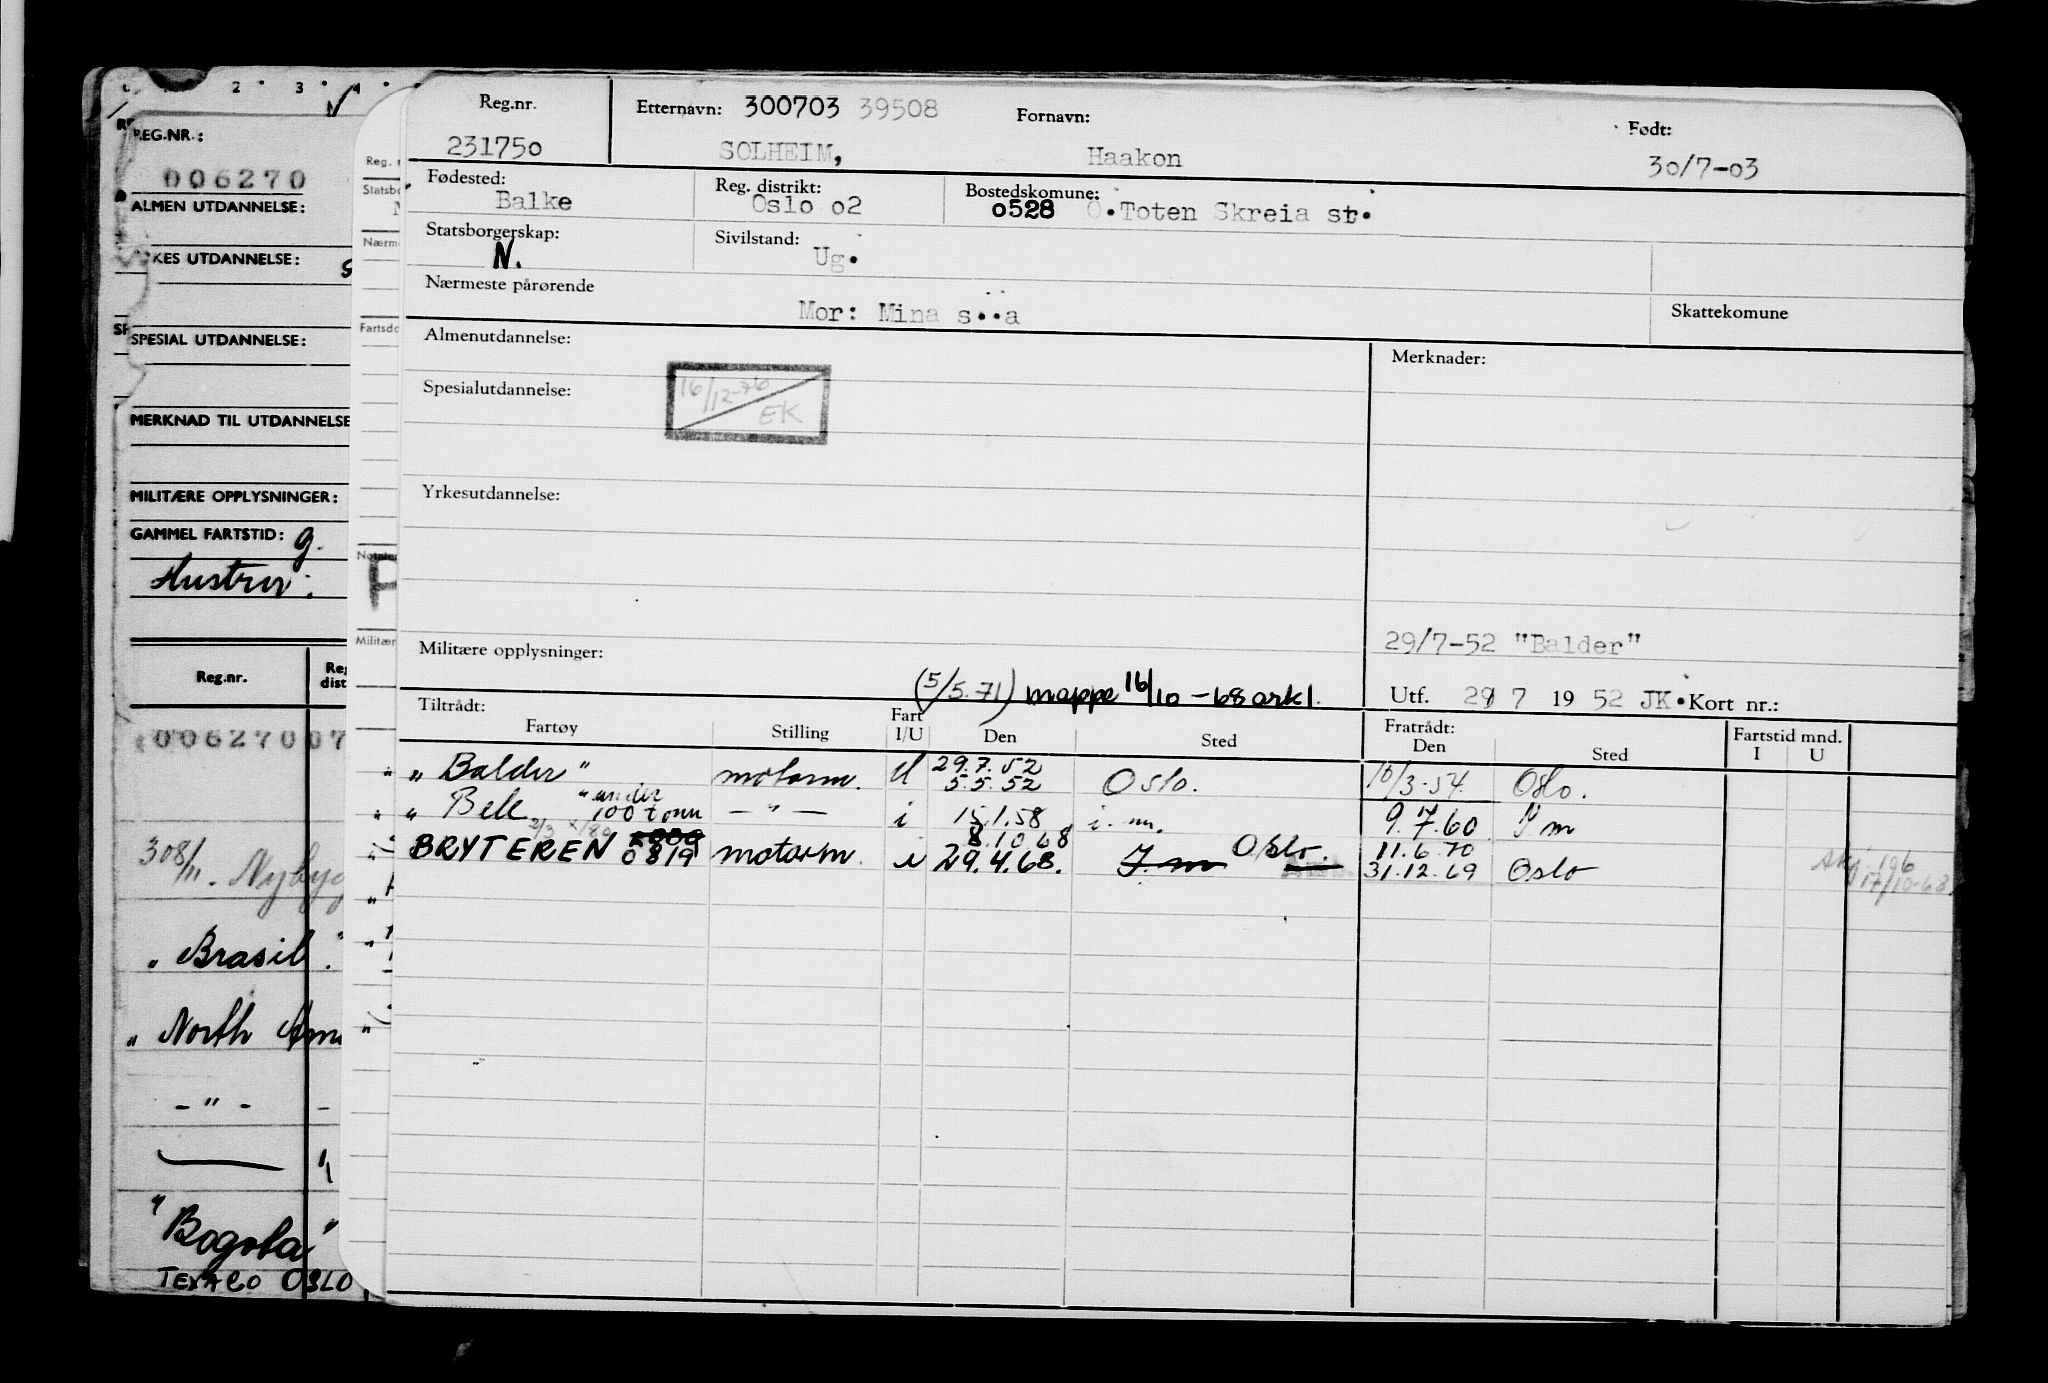 2 3 4
REG.NR.:
006270
ALMEN UTDANNELSE:
KES UTDANNELSE:
SPESIAL UTDANNELSE:
MERKNAD TIL UTDANNELSE
MILITÆRE OPPLYSNINGER:
GAMMEL FARTSTID: g.
Hustru:
Reg.nr. Reg dist
00627007
308/11. Nybyg
"Brasil"
"North Am
- " -
"Bogota"
TEXACO OSLO
Reg. n
Statsbo
Nærme
Fartsdo
Militær
Reg.nr. Etternavn: 300703 39508 Fornavn: Født:
231750 SOLHEIM, Haakon 30/7-03
Fødested: Reg. distrikt: Bostedskomune:
Balke Oslo 02 0528 Ø.Toten Skreia st.
Statsborgerskap: Sivilstand:
N. Ug.
Nærmeste pårørende Skattekomune
Mor: Mina s..a
Almenutdannelse: Merknader:
Spesialutdannelse: 16/12-76 EK
Yrkesutdannelse:
29/7-52 "Balder"
Militære opplysninger:
(5/5.71) mappe 16/10-68 arkl. Utf. 29 7 1952 JK.Kort nr.:
Tiltrådt: Fart Fratrådt: Fartstid mnd.
Fartøy Stilling I/U Den Sted Den Sted I U
29.7.52
"Balder" motorm. 5.5.52 Oslo. 10/3-54 Oslo.
"Bele" under 100 tonn - " - i 15.1.58 i. m. 9.7.60 I m
8.10.68 Oslo. 11.6.70
BRYTEREN 0819 motorm. u 29.4.68. I. m 31.12.69 Oslo 196 17/10-68